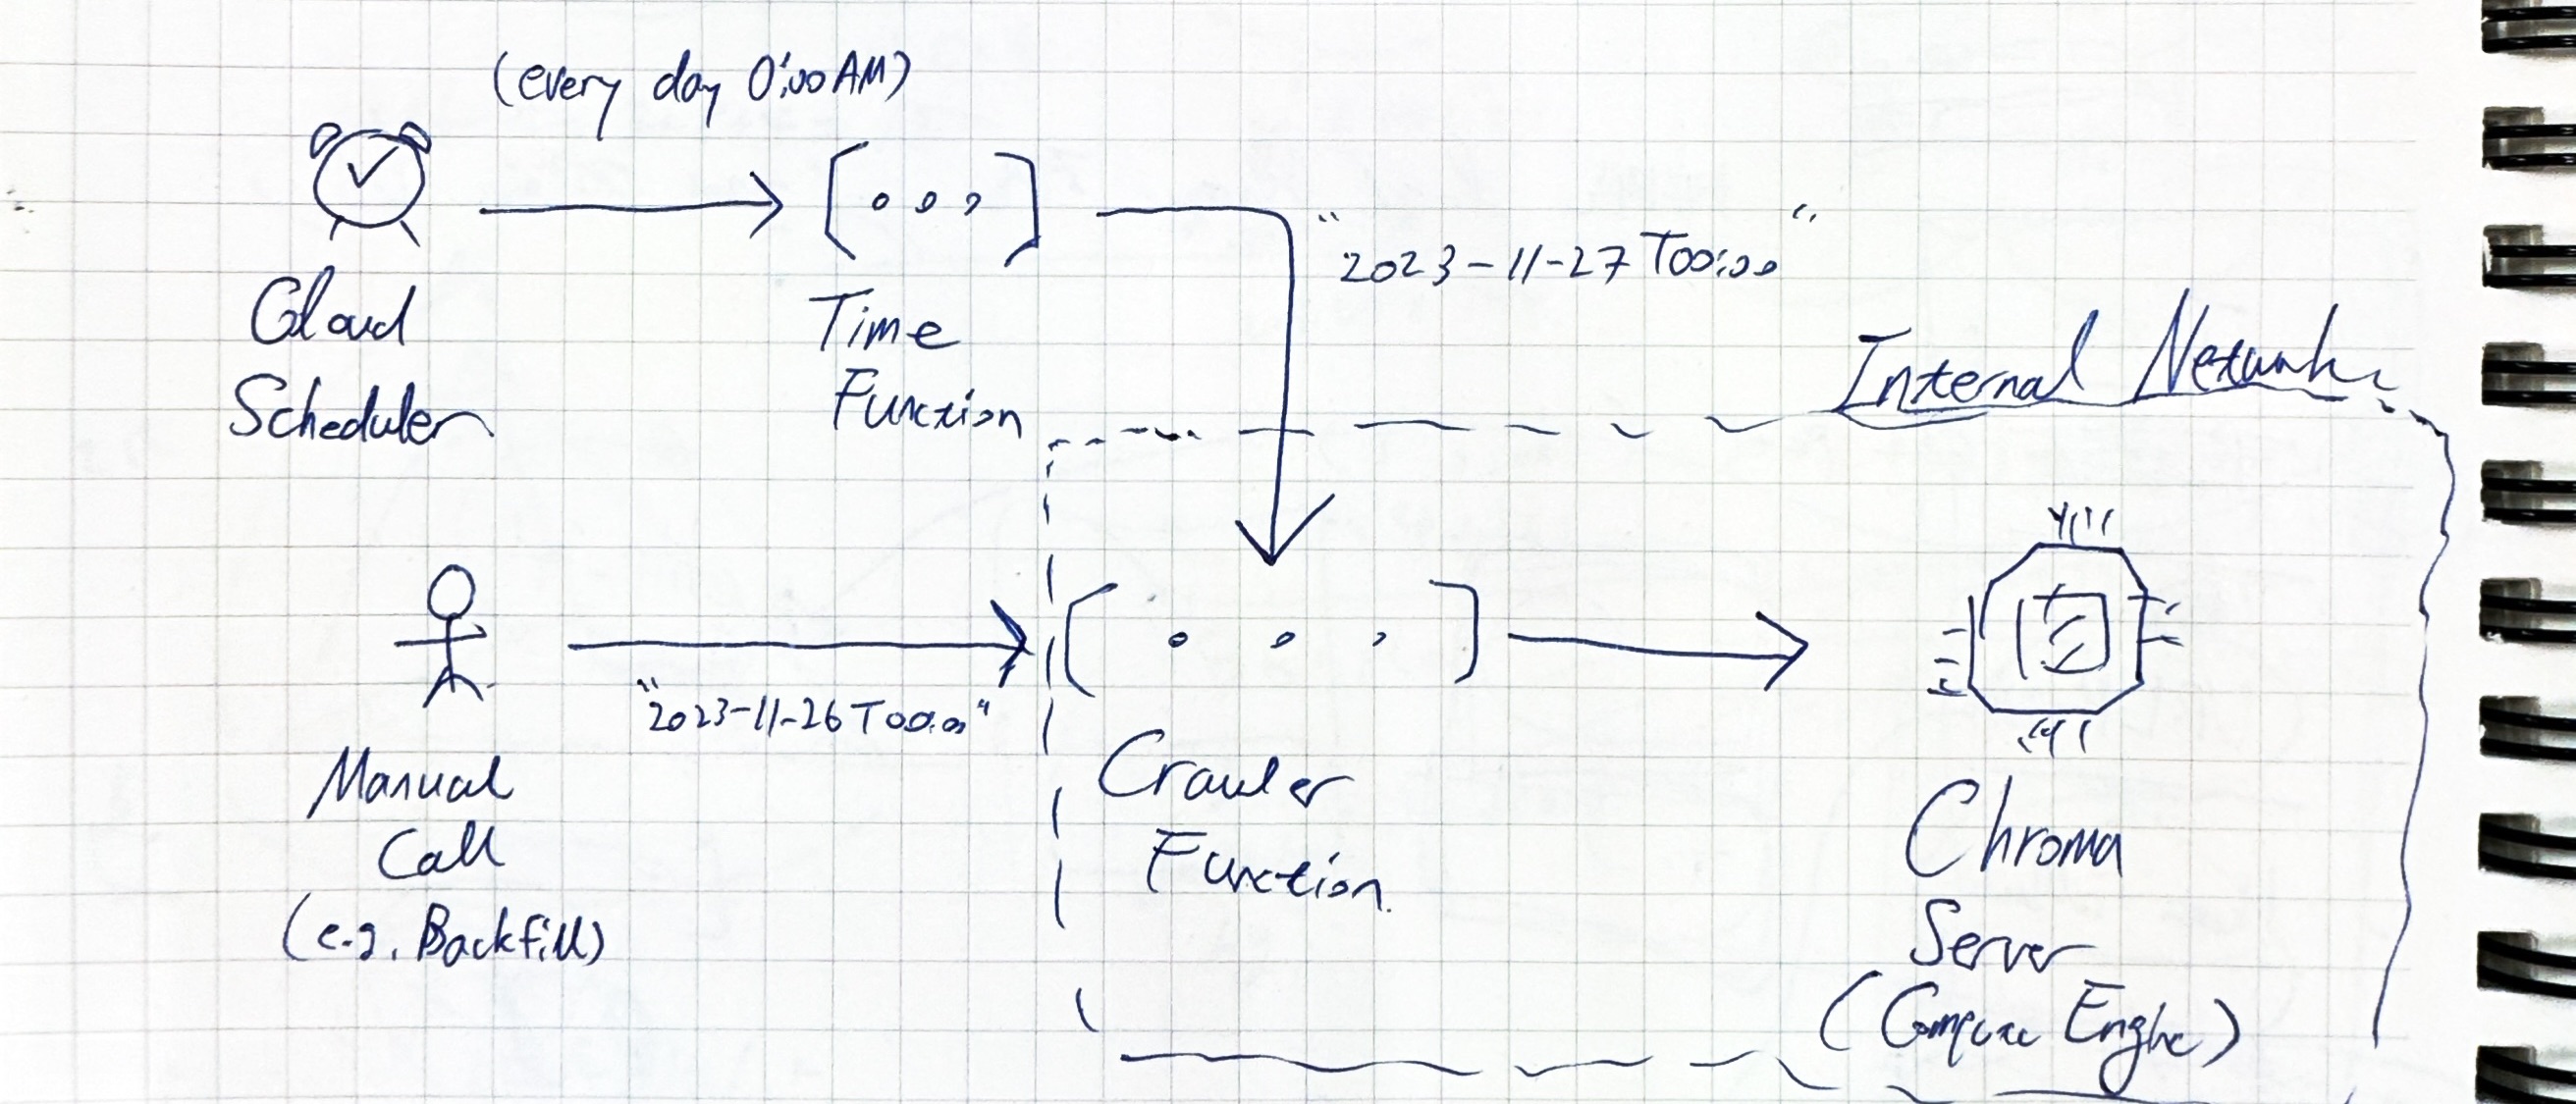 (every day 0:00AM)
Cloud
Scheduler
Time
Function
"2023-11-27T00:00"
Internal Network
Manual
Call
(e.g. Backfill)
"2023-11-26T00:00"
Crawler
Function
Chroma
Server
(Compute Engine)